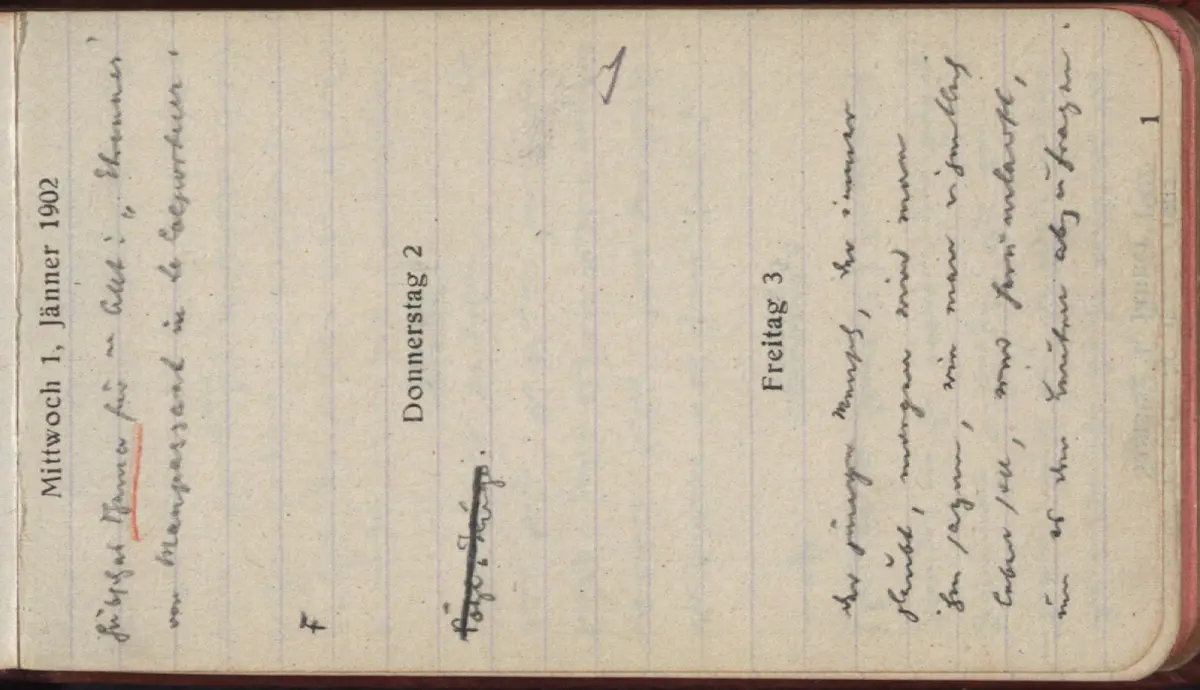 Mittwoch 1, Jänner 1902
Hübsches Thema für
von Maupassant in
F
Donnerstag 2
Freitag 3
Der junge Mensch, der immer
glaubt, morgen wird man
ihm sagen, wie man eigentlich
leben soll, und herumlauft,
um es den Leuten abzufragen.
1